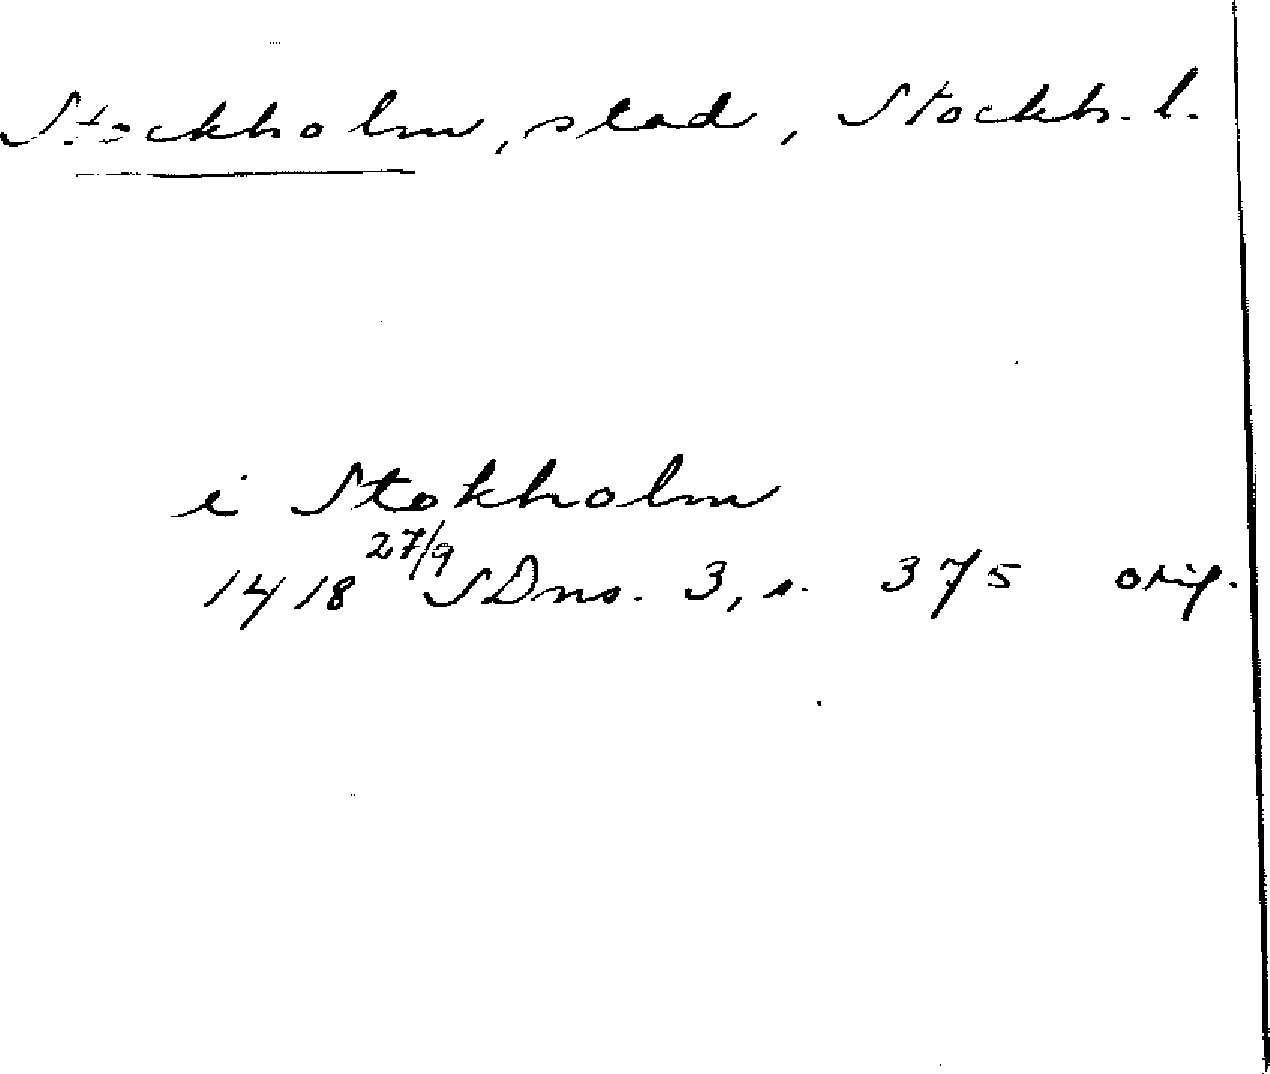 Stockholm, stad, Stockh. l.
i Stokholm
1418 27/9 SDns. 3, s. 375 orig.